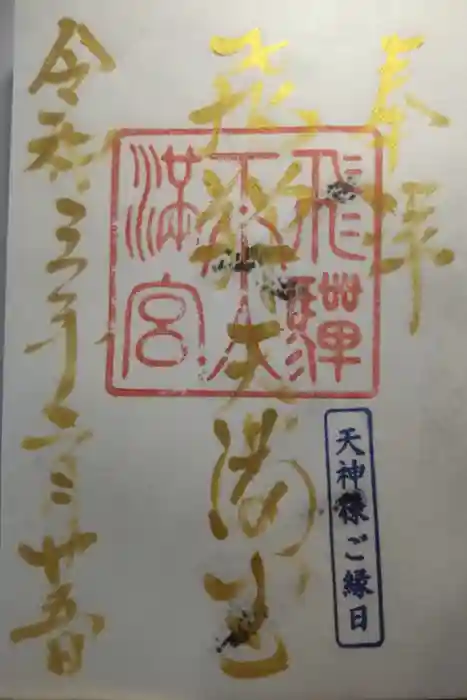 奉拝
飛騨天満宮
飛騨天満宮
天神様ご縁日
令和三年二月廿五日